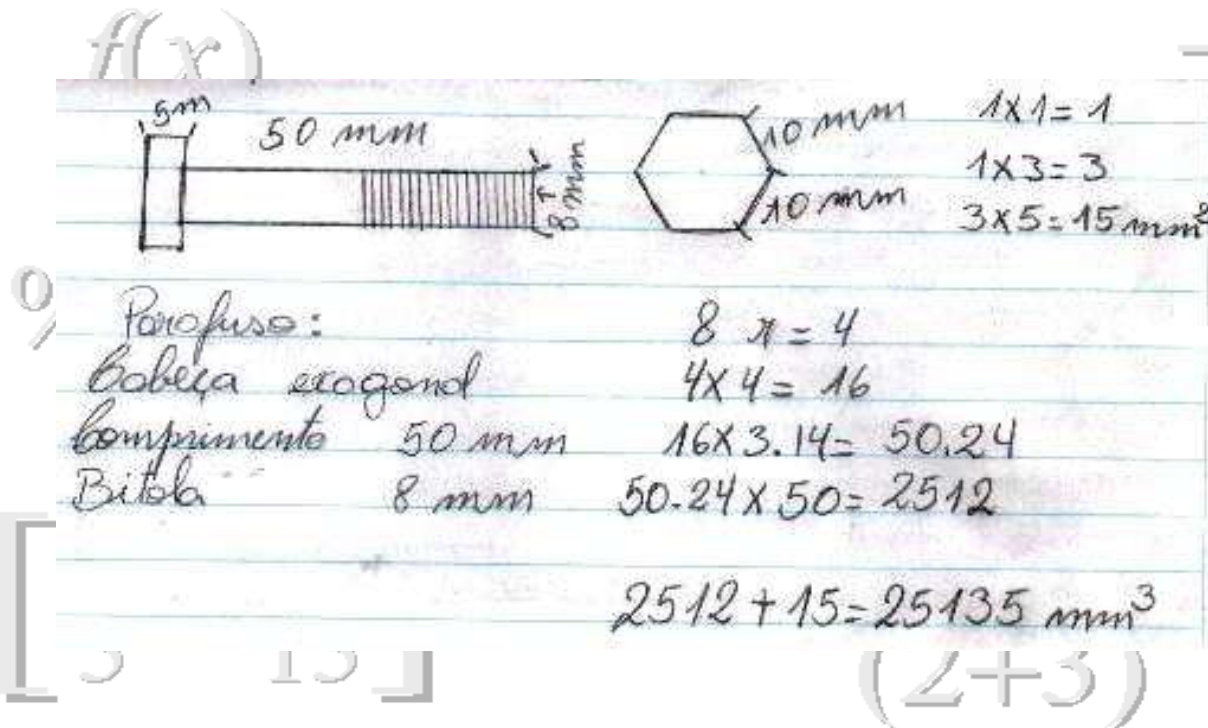 f(x)
5m
50 mm
8 mm
10 mm
10 mm
1x1=1
1x3=3
3x5=15 mm²
%
Parafuso:
Cabeça exagonal
Comprimento 50 mm
Bitola 8 mm
8 r=4
4x4=16
16x3.14=50.24
50.24x50=2512
2512+15=25135 mm³
[ 5 15 ]
(2+3)